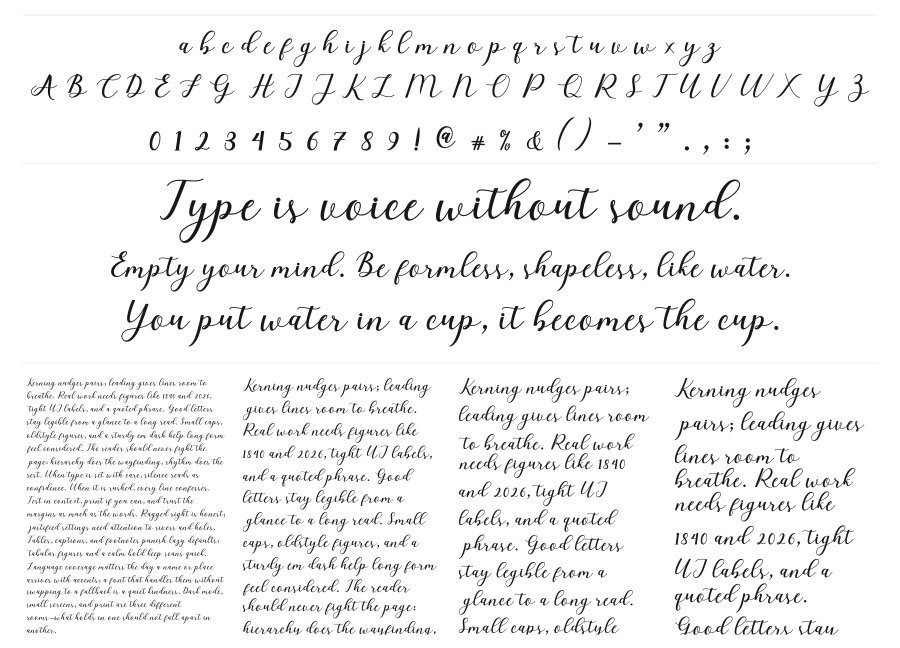 a b c d e f g h i j k l m n o p q r s t u v w x y z
A B C D E F G H I J K L M N O P Q R S T U V W X Y Z
0 1 2 3 4 5 6 7 8 9 ! @ # % & ( ) – ’ ” . , : ;
Type is voice without sound.
Empty your mind. Be formless, shapeless, like water.
You put water in a cup, it becomes the cup.
Kerning nudges pairs; leading gives lines room to
breathe. Real work needs figures like 1840 and 2026,
tight UI labels, and a quoted phrase. Good letters
stay legible from a glance to a long read. Small caps,
oldstyle figures, and a sturdy em dash help long form
feel considered. The reader should never fight the
page: hierarchy does the wayfinding, rhythm does the
rest. When type is set with care, silence reads as
confidence. When it is rushed, every line confesses.
Test in context, print if you can, and trust the
margins as much as the words. Ragged right is honest;
justified settings need attention to rivers and holes.
Tables, captions, and footnotes punish lazy defaults;
tabular figures and a calm bold keep scans quick.
Language coverage matters the day a name or place
arrives with accents; a font that handles them without
swapping to a fallback is a quiet kindness. Dark mode,
small screens, and print are three different
rooms—what holds in one should not fall apart in
another.
Kerning nudges pairs; leading
gives lines room to breathe.
Real work needs figures like
1840 and 2026, tight UI labels,
and a quoted phrase. Good
letters stay legible from a
glance to a long read. Small
caps, oldstyle figures, and a
sturdy em dash help long form
feel considered. The reader
should never fight the page:
hierarchy does the wayfinding,
Kerning nudges pairs;
leading gives lines room
to breathe. Real work
needs figures like 1840
and 2026, tight UI
labels, and a quoted
phrase. Good letters
stay legible from a
glance to a long read.
Small caps, oldstyle
Kerning nudges
pairs; leading gives
lines room to
breathe. Real work
needs figures like
1840 and 2026, tight
UI labels, and a
quoted phrase.
Good letters stay